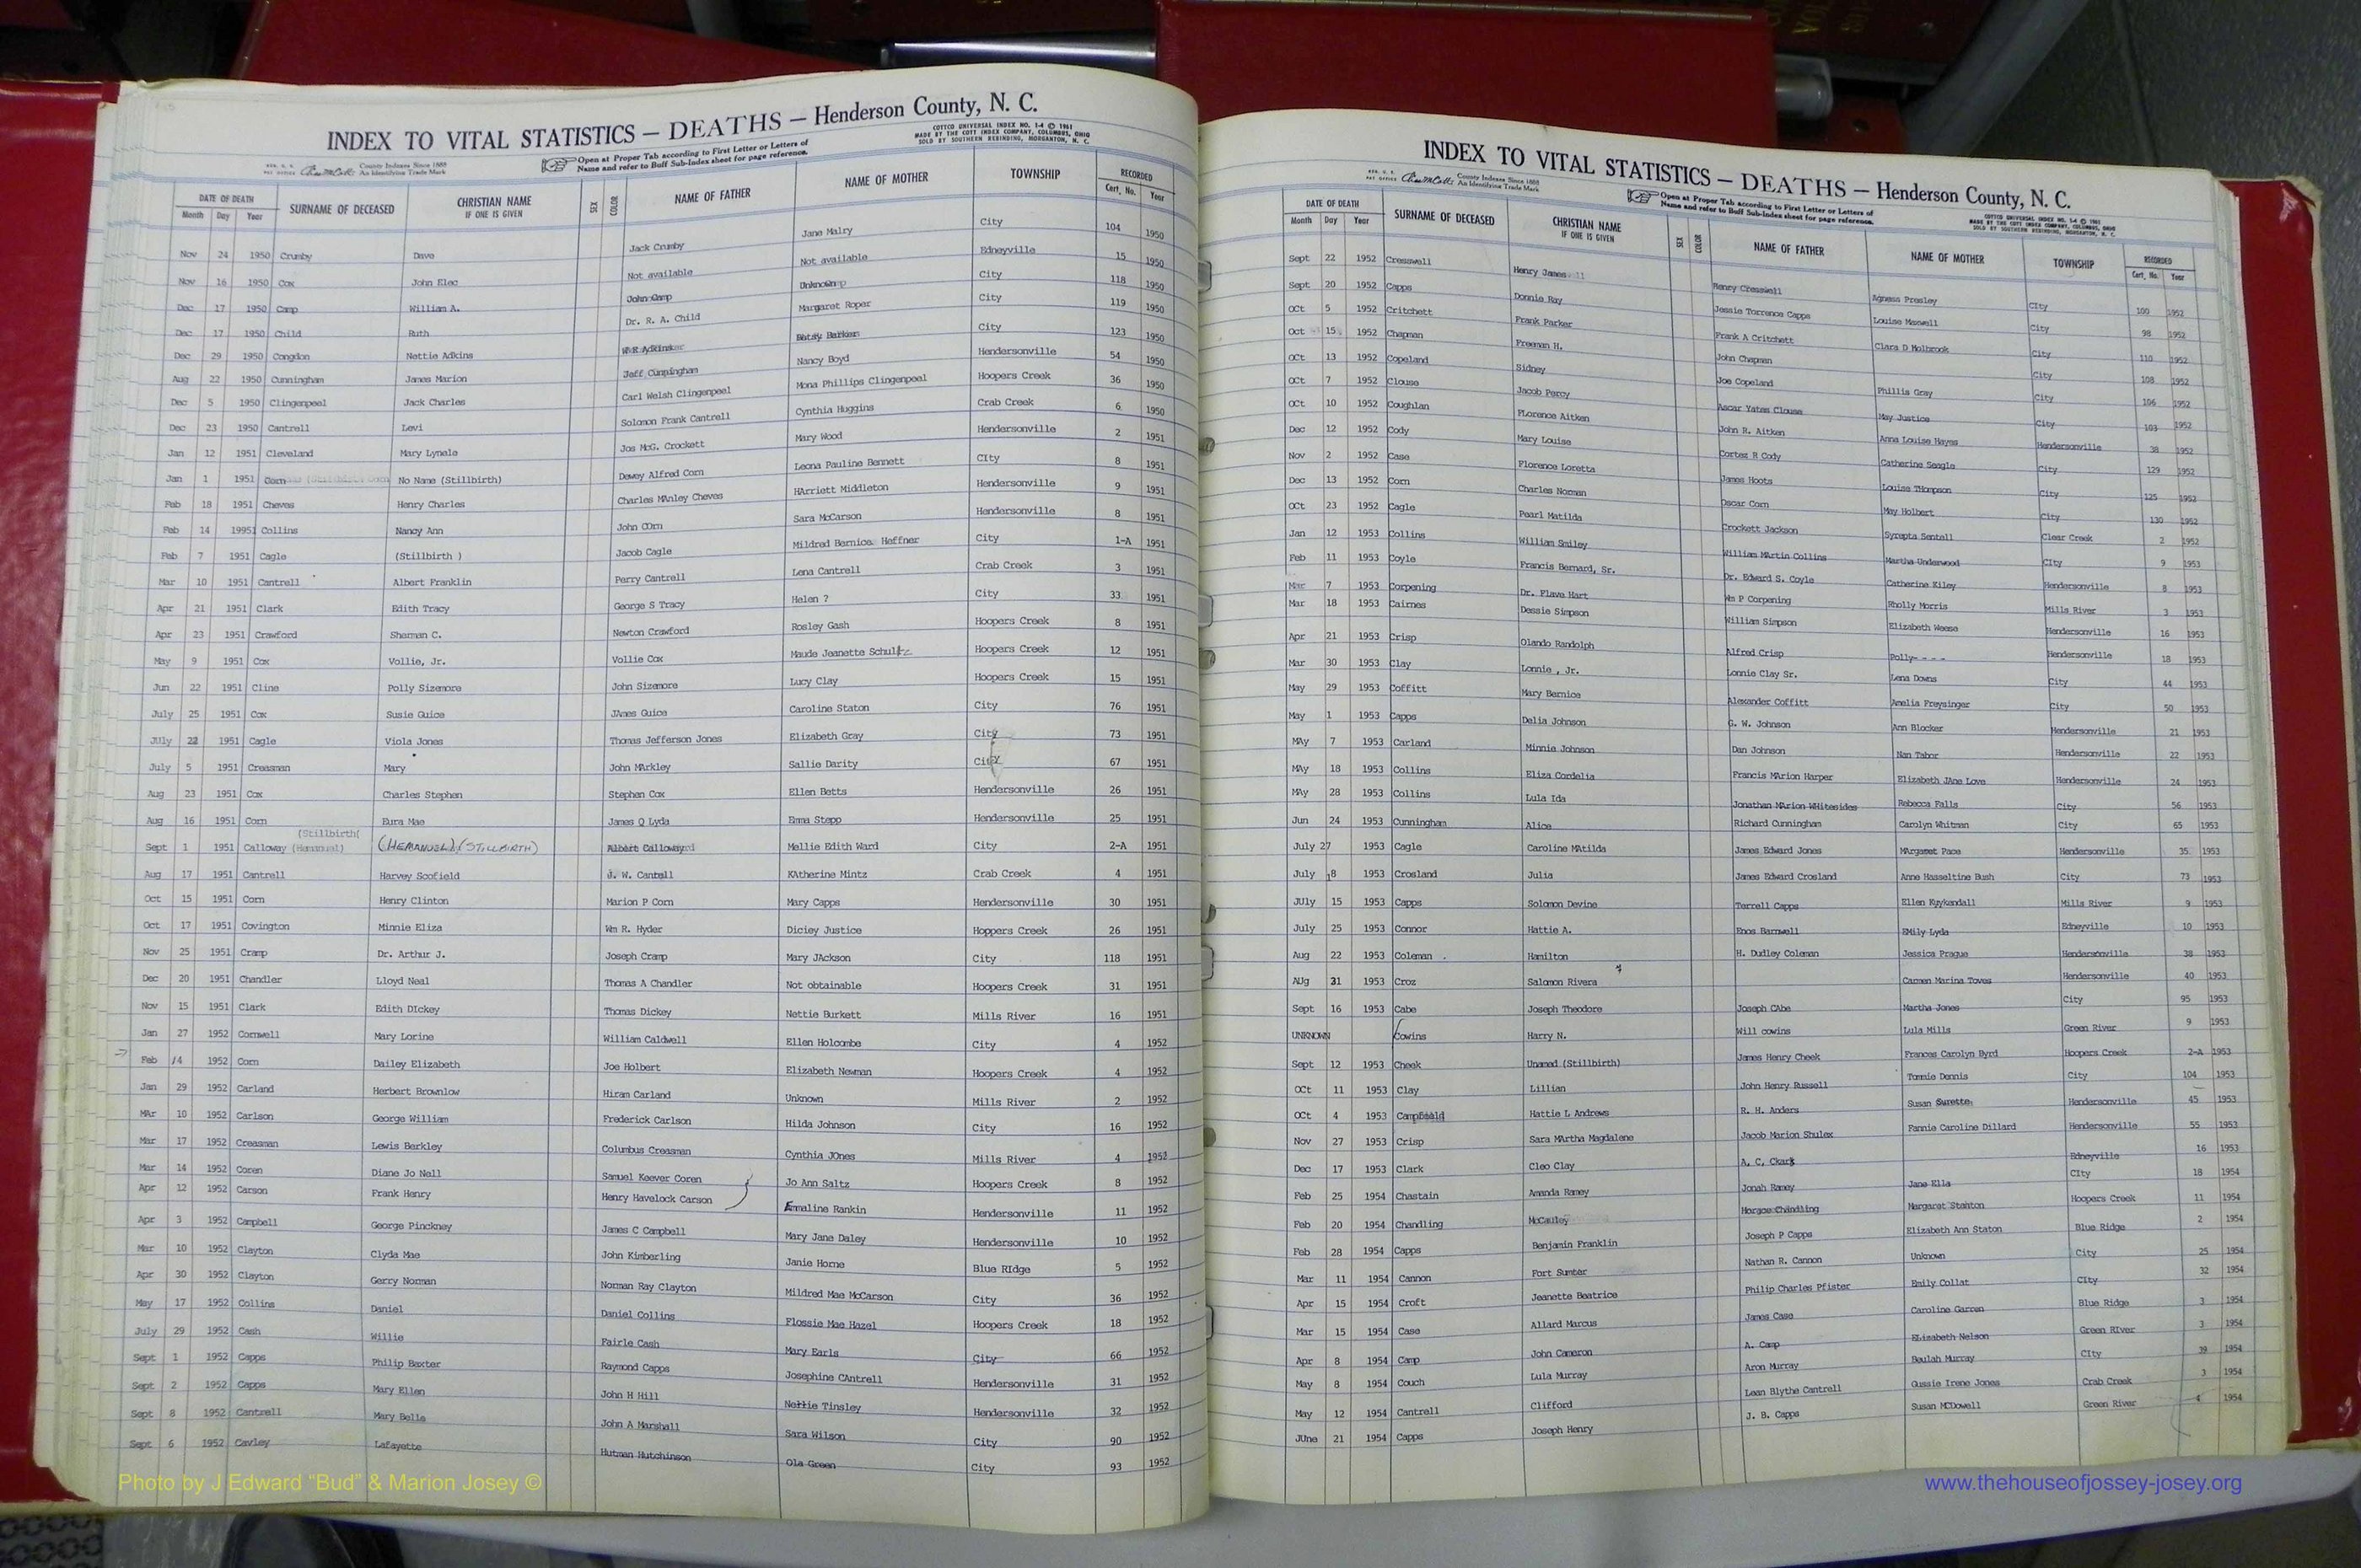 INDEX TO VITAL STATISTICS — DEATHS — Henderson County, N. C.
COTTCO UNIVERSAL INDEX NO. 1-4 © 1961
MADE BY THE COTT INDEX COMPANY, COLUMBUS, OHIO
SOLD BY SOUTHERN REBINDING, MORGANTON, N. C.
County Indexes Since 1888
An Identifying Trade Mark
Open at Proper Tab according to First Letter or Letters of
Name and refer to Buff Sub-Index sheet for page reference.
DATE OF DEATH SURNAME OF DECEASED CHRISTIAN NAME IF ONE IS GIVEN SEX COLOR NAME OF FATHER NAME OF MOTHER TOWNSHIP RECORDED
Month Day Year Cert. No. Year
Nov 24 1950 Crumby Dave Jack Crumby Jane Malry City 104 1950
Nov 16 1950 Cox John Elec Not available Not available Edneyville 15 1950
Dec 17 1950 Camp William A. John Camp Unknown City 118 1950
Dec 17 1950 Child Ruth Dr. R. A. Child Margaret Roper City 119 1950
Dec 29 1950 Congdon Nettie Adkins Betsy Barker City 123 1950
Aug 22 1950 Cunningham James Marion Jeff Cunningham Nancy Boyd Hendersonville 54 1950
Dec 5 1950 Clingenpeel Jack Charles Carl Welsh Clingenpeel Mona Phillips Clingenpeel Hoopers Creek 36 1950
Dec 23 1950 Cantrell Levi Solomon Frank Cantrell Cynthia Huggins Crab Creek 6 1950
Jan 12 1951 Cleveland Mary Lynale Jos McG. Crockett Mary Wood Hendersonville 2 1951
Jan 1 1951 Corn No Name (Stillbirth) Dewey Alfred Corn Leona Pauline Bennett CIty 8 1951
Feb 18 1951 Cheves Henry Charles Charles MAnley Cheves HArriett Middleton Hendersonville 9 1951
Feb 14 19951 Collins Nancy Ann John COrn Sara McCarson Hendersonville 8 1951
Feb 7 1951 Cagle (Stillbirth ) Jacob Cagle Mildred Bernice Heffner City 1-A 1951
Mar 10 1951 Cantrell Albert Franklin Perry Cantrell Lena Cantrell Crab Creek 3 1951
Apr 21 1951 Clark Edith Tracy George S Tracy Helen ? City 33 1951
Apr 23 1951 Crawford Sherman C. Newton Crawford Rosley Gash Hoopers Creek 8 1951
May 9 1951 Cox Vollie, Jr. Vollie Cox Maude Jeanette Schultz Hoopers Creek 12 1951
Jun 22 1951 Cline Polly Sizemore John Sizemore Lucy Clay Hoopers Creek 15 1951
July 25 1951 Cox Susie Guice JAmes Guice Caroline Staton City 76 1951
JUly 22 1951 Cagle Viola Jones Thomas Jefferson Jones Elizabeth Gray City 73 1951
July 5 1951 Creasman Mary John MArkley Sallie Darity City 67 1951
Aug 23 1951 Cox Charles Stephen Stephen Cox Ellen Betts Hendersonville 26 1951
Aug 16 1951 Corn Eura Mae James Q Lyda Emma Stepp Hendersonville 25 1951
(Stillbirth(
Sept 1 1951 Calloway (Hemanuel) (HEMANUEL) (STILLBIRTH) Albert Calloway Mellie Edith Ward City 2-A 1951
Aug 17 1951 Cantrell Harvey Scofield J. W. Cantell KAtherine Mintz Crab Creek 4 1951
Oct 15 1951 Corn Henry Clinton Marion P Corn Mary Capps Hendersonville 30 1951
Oct 17 1951 Covington Minnie Eliza Wm R. Hyder Diciey Justice Hoppers Creek 26 1951
Nov 25 1951 Cramp Dr. Arthur J. Joseph Cramp Mary JAckson City 118 1951
Dec 20 1951 Chandler Lloyd Neal Thomas A Chandler Not obtainable Hoopers Creek 31 1951
Nov 15 1951 Clark Edith DIckey Thomas Dickey Nettie Burkett Mills River 16 1951
Jan 27 1952 Cornwell Mary Lorine William Caldwell Ellen Holcombe City 4 1952
Feb 14 1952 Corn Dailey Elizabeth Joe Holbert Elizabeth Newman Hoopers Creek 4 1952
Jan 29 1952 Carland Herbert Brownlow Hiram Carland Unknown Mills River 2 1952
MAr 10 1952 Carlson George William Frederick Carlson Hilda Johnson City 16 1952
Mar 17 1952 Creasman Lewis Barkley Columbus Creasman Cynthia JOnes Mills River 4 1952
Mar 14 1952 Coren Diane Jo Nell Samuel Keever Coren Jo Ann Saltz Hoopers Creek 8 1952
Apr 12 1952 Carson Frank Henry Henry Havelock Carson Emmaline Rankin Hendersonville 11 1952
Apr 3 1952 Campbell George Pinckney James C Campbell Mary Jane Daley Hendersonville 10 1952
Mar 10 1952 Clayton Clyda Mae John Kimberling Janie Horne Blue RIdge 5 1952
Apr 30 1952 Clayton Gerry Norman Norman Ray Clayton Mildred Mae McCarson City 36 1952
May 17 1952 Collins Daniel Daniel Collins Flossie Mae Hazel Hoopers Creek 18 1952
July 29 1952 Cash Willie Fairle Cash Mary Earls City 66 1952
Sept 1 1952 Capps Philip Baxter Raymond Capps Josephine CAntrell Hendersonville 31 1952
Sept 2 1952 Capps Mary Ellen John H Hill Nettie Tinsley Hendersonville 32 1952
Sept 8 1952 Cantrell Mary Belle John A Marshall Sara Wilson City 90 1952
Sept 6 1952 Cavley Lafayette Hutman Hutchinson Ola Green City 93 1952
Photo by J Edward “Bud” & Marion Josey ©
INDEX TO VITAL STATISTICS — DEATHS — Henderson County, N. C.
County Indexes Since 1888
An Identifying Trade Mark
Open at Proper Tab according to First Letter or Letters of
Name and refer to Buff Sub-Index sheet for page reference.
COTTCO UNIVERSAL INDEX NO. 1-4 © 1961
MADE BY THE COTT INDEX COMPANY, COLUMBUS, OHIO
SOLD BY SOUTHERN REBINDING, MORGANTON, N. C.
DATE OF DEATH SURNAME OF DECEASED CHRISTIAN NAME IF ONE IS GIVEN SEX COLOR NAME OF FATHER NAME OF MOTHER TOWNSHIP RECORDED
Month Day Year Cert. No. Year
Sept 22 1952 Cresswell Henry James Henry Cresswell Agness Presley CIty 100 1952
Sept 20 1952 Capps Donnie Ray Jessie Torrence Capps Louise Maxwell City 98 1952
OCt 5 1952 Critchett Frank Parker Frank A Critchett Clara D Holbrook City 110 1952
Oct 15 1952 Chapman Freeman H. John Chapman City 108 1952
OCt 13 1952 Copeland Sidney Joe Copeland Phillis Gray City 106 1952
OCt 7 1952 Clouse Jacob Percy Ascar Yates Clouse May Justice City 103 1952
OCt 10 1952 Coughlan FLorence Aitken John R. Aitken Anna Louise Hayes Hendersonville 38 1952
Dec 12 1952 Cody Mary Louise Cortez R Cody Catherine Seagle City 129 1952
Nov 2 1952 Case Florence Loretta James Hoots Louise THompson City 125 1952
Dec 13 1952 Corn Charles Norman Oscar Corn May Holbert City 130 1952
OCt 23 1952 Cagle Pearl Matilda Crockett Jackson Syrepta Sentell Clear Creek 2 1952
Jan 12 1953 Collins William Smiley William MArtin Collins Martha Underwood CIty 9 1953
Feb 11 1953 Coyle Francis Bernard, Sr. Dr. Edward S. Coyle Catherine Kiley Hendersonville 8 1953
Mar 7 1953 Corpening Dr. Flave Hart Wm P Corpening Rholly Morris Mills River 3 1953
Mar 18 1953 Cairnes Dessie Simpson William Simpson Elizabeth Weese Hendersonville 16 1953
Apr 21 1953 Crisp Olando Randolph Alfred Crisp Polly- - - - Hendersonville 18 1953
Mar 30 1953 Clay Lonnie , Jr. Lonnie Clay Sr. Lena Downs City 44 1953
May 29 1953 Coffitt Mary Bernice Alexander Coffitt Amelia Freysinger City 50 1953
May 1 1953 Capps Delia Johnson G. W. Johnson Ann Blocker Hendersonville 21 1953
MAy 7 1953 Carland Minnie Johnson Dan Johnson Nan Tabor Hendersonville 22 1953
MAy 18 1953 Collins Eliza Cordelia Francis MArion Harper Elizabeth JAne Love Hendersonville 24 1953
MAy 28 1953 Collins Lula Ida Jonathan MArion WHitesides Rebecca Falls City 56 1953
Jun 24 1953 Cunningham Alice Richard Cunningham Carolyn Whitman City 65 1953
July 27 1953 Cagle Caroline MAtilda James Edward Jones MArgaret Pace Hendersonville 35 1953
July 18 1953 Crosland Julia James Edward Crosland Anne Hasseltine Bush City 73 1953
JUly 15 1953 Capps Solomon Devine Terrell Capps Ellen Kuykendall Mills River 9 1953
July 25 1953 Connor Hattie A. Enos Barnwell EMily Lyda Edneyville 10 1953
Aug 22 1953 Coleman Hamilton H. Dudley Coleman Jessica Prague Hendersonville 38 1953
AUg 31 1953 Croz Salomon Rivera Carmen Marina Toves Hendersonville 40 1953
Sept 16 1953 Cabe Joseph Theodore Joseph CAbe Martha Jones City 95 1953
UNKNOWN Cowins Harry N. Will cowins Lula Mills Green River 9 1953
Sept 12 1953 Cheek Unamed (Stillbirth) James Henry Cheek Frances Carolyn Byrd Hoopers Creek 2-A 1953
OCt 11 1953 Clay Lillian John Henry Russell Tommie Dennis City 104 1953
OCt 4 1953 Hattie L Andrews R. H. Anders Susan Surette Hendersonville 45 1953
Nov 27 1953 Crisp Sara MArtha Magdalene Jacob Marion Shulex Fannie Caroline Dillard Hendersonville 55 1953
Dec 17 1953 Clark Cleo Clay A. C. Ckark Edneyville 16 1953
Feb 25 1954 Chastain Amanda Raney Jonah Raney Jane Ella CIty 18 1954
Feb 20 1954 Chandling McCauley Horace Chandling Margaret Stanton Hoopers Creek 11 1954
Feb 28 1954 Capps Benjamin Franklin Joseph P Capps Elizabeth Ann Staton Blue Ridge 2 1954
Mar 11 1954 Cannon Fort Sumter Nathan R. Cannon Unknown City 25 1954
Apr 15 1954 Croft Jeanette Beatrice Philip Charles Pfister Emily Collat CIty 32 1954
Mar 15 1954 Case Allard Marcus James Case Caroline Garren Blue Ridge 3 1954
Apr 8 1954 Camp John Cameron A. Camp ELizabeth Nelson Green RIver 3 1954
May 8 1954 Couch Lula Murray Aron Murray Beulah Murray CIty 39 1954
May 12 1954 Cantrell Clifford Lean Blythe Cantrell Gussie Irene Jones Crab Creek 3 1954
JUne 21 1954 Capps Joseph Henry J. B. Capps Susan MCDowell Green River 4 1954
www.thehouseofjossey-josey.org